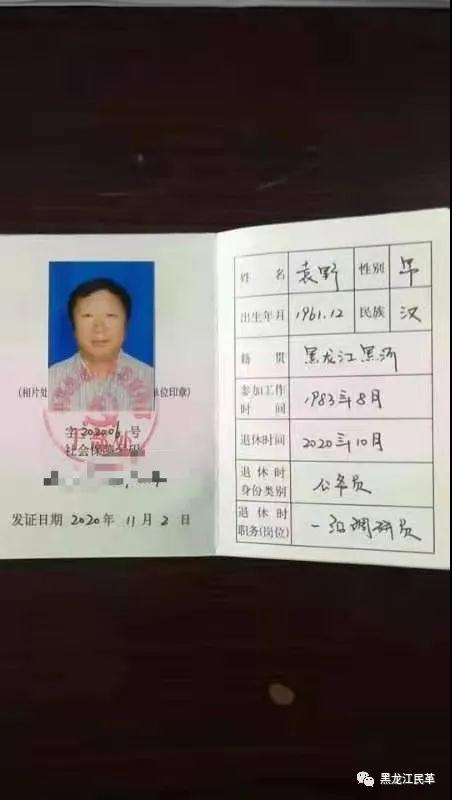 (相片处 单位印章)
字 202006 号
社会保障
发证日期 2020 年 11 月 2 日
姓 名 袁野 性别 男
出生年月 1961.12 民族 汉
籍 贯 黑龙江黑河
参加工作
时 间 1983年8月
退休时间 2020年10月
退 休 时
身份类别 公务员
退 休 时
职务(岗位) 一级调研员
黑龙江民革